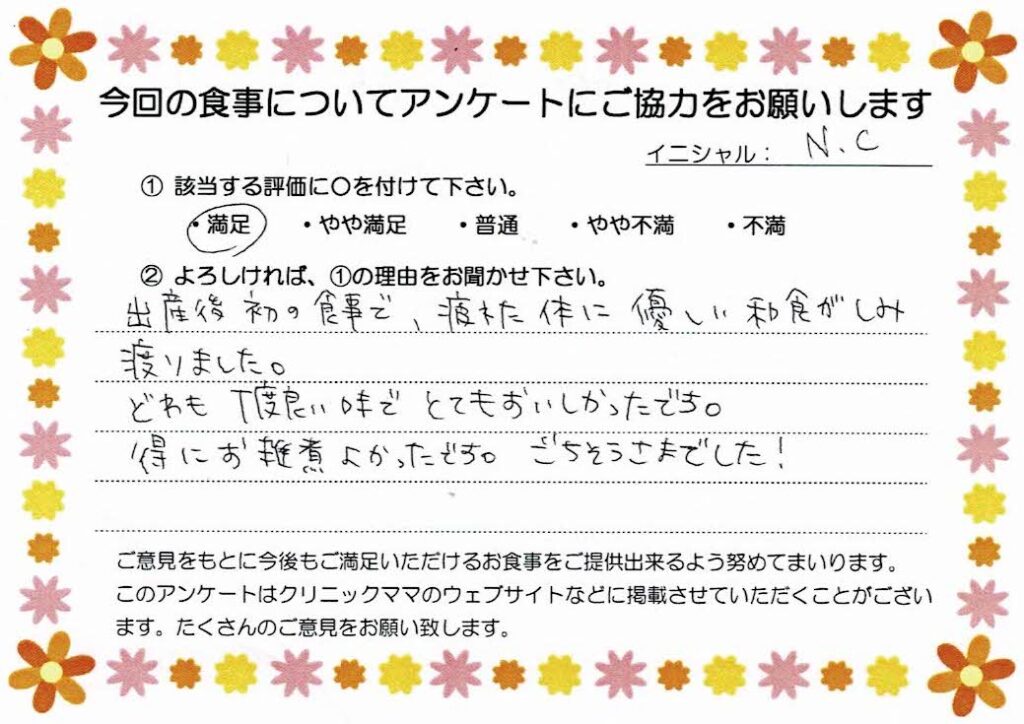 今回の食事についてアンケートにご協力をお願いします
イニシャル： N.C
① 該当する評価に○を付けて下さい。
・満足 ・やや満足 ・普通 ・やや不満 ・不満
② よろしければ、①の理由をお聞かせ下さい。
出産後初の食事で、疲れた体に優しい和食がしみ
渡りました。
どれも丁度良い味でとてもおいしかったです。
得にお雑煮よかったです。ごちそうさまでした!
ご意見をもとに今後もご満足いただけるお食事をご提供出来るよう努めてまいります。
このアンケートはクリニックママのウェブサイトなどに掲載させていただくことがござい
ます。たくさんのご意見をお願い致します。